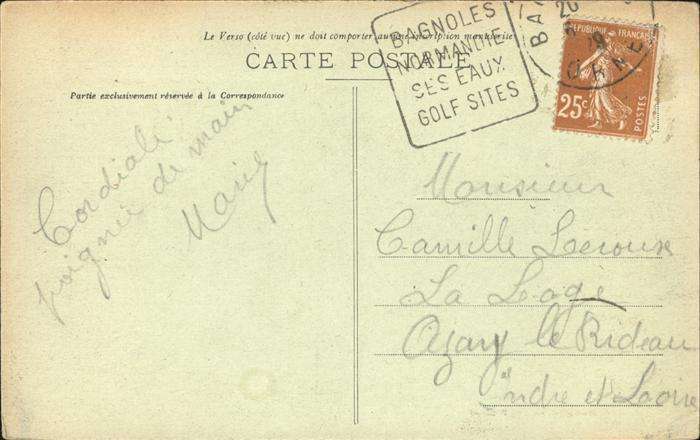 Le Verso (côté vue) ne doit comporter aucune inscription manuscrite
CARTE POSTALE
Partie exclusivement réservée à la Correspondance
BAGNOLES
NORMANDIE
SES EAUX
GOLF SITES
BA
20
ORNE
REPUBLIQUE FRANÇAISE
25c
POSTES
Cordiale
poignée de main
Marie
Monsieur
Camille Leroux
La Loge
Azay le Rideau
Indre et Loire